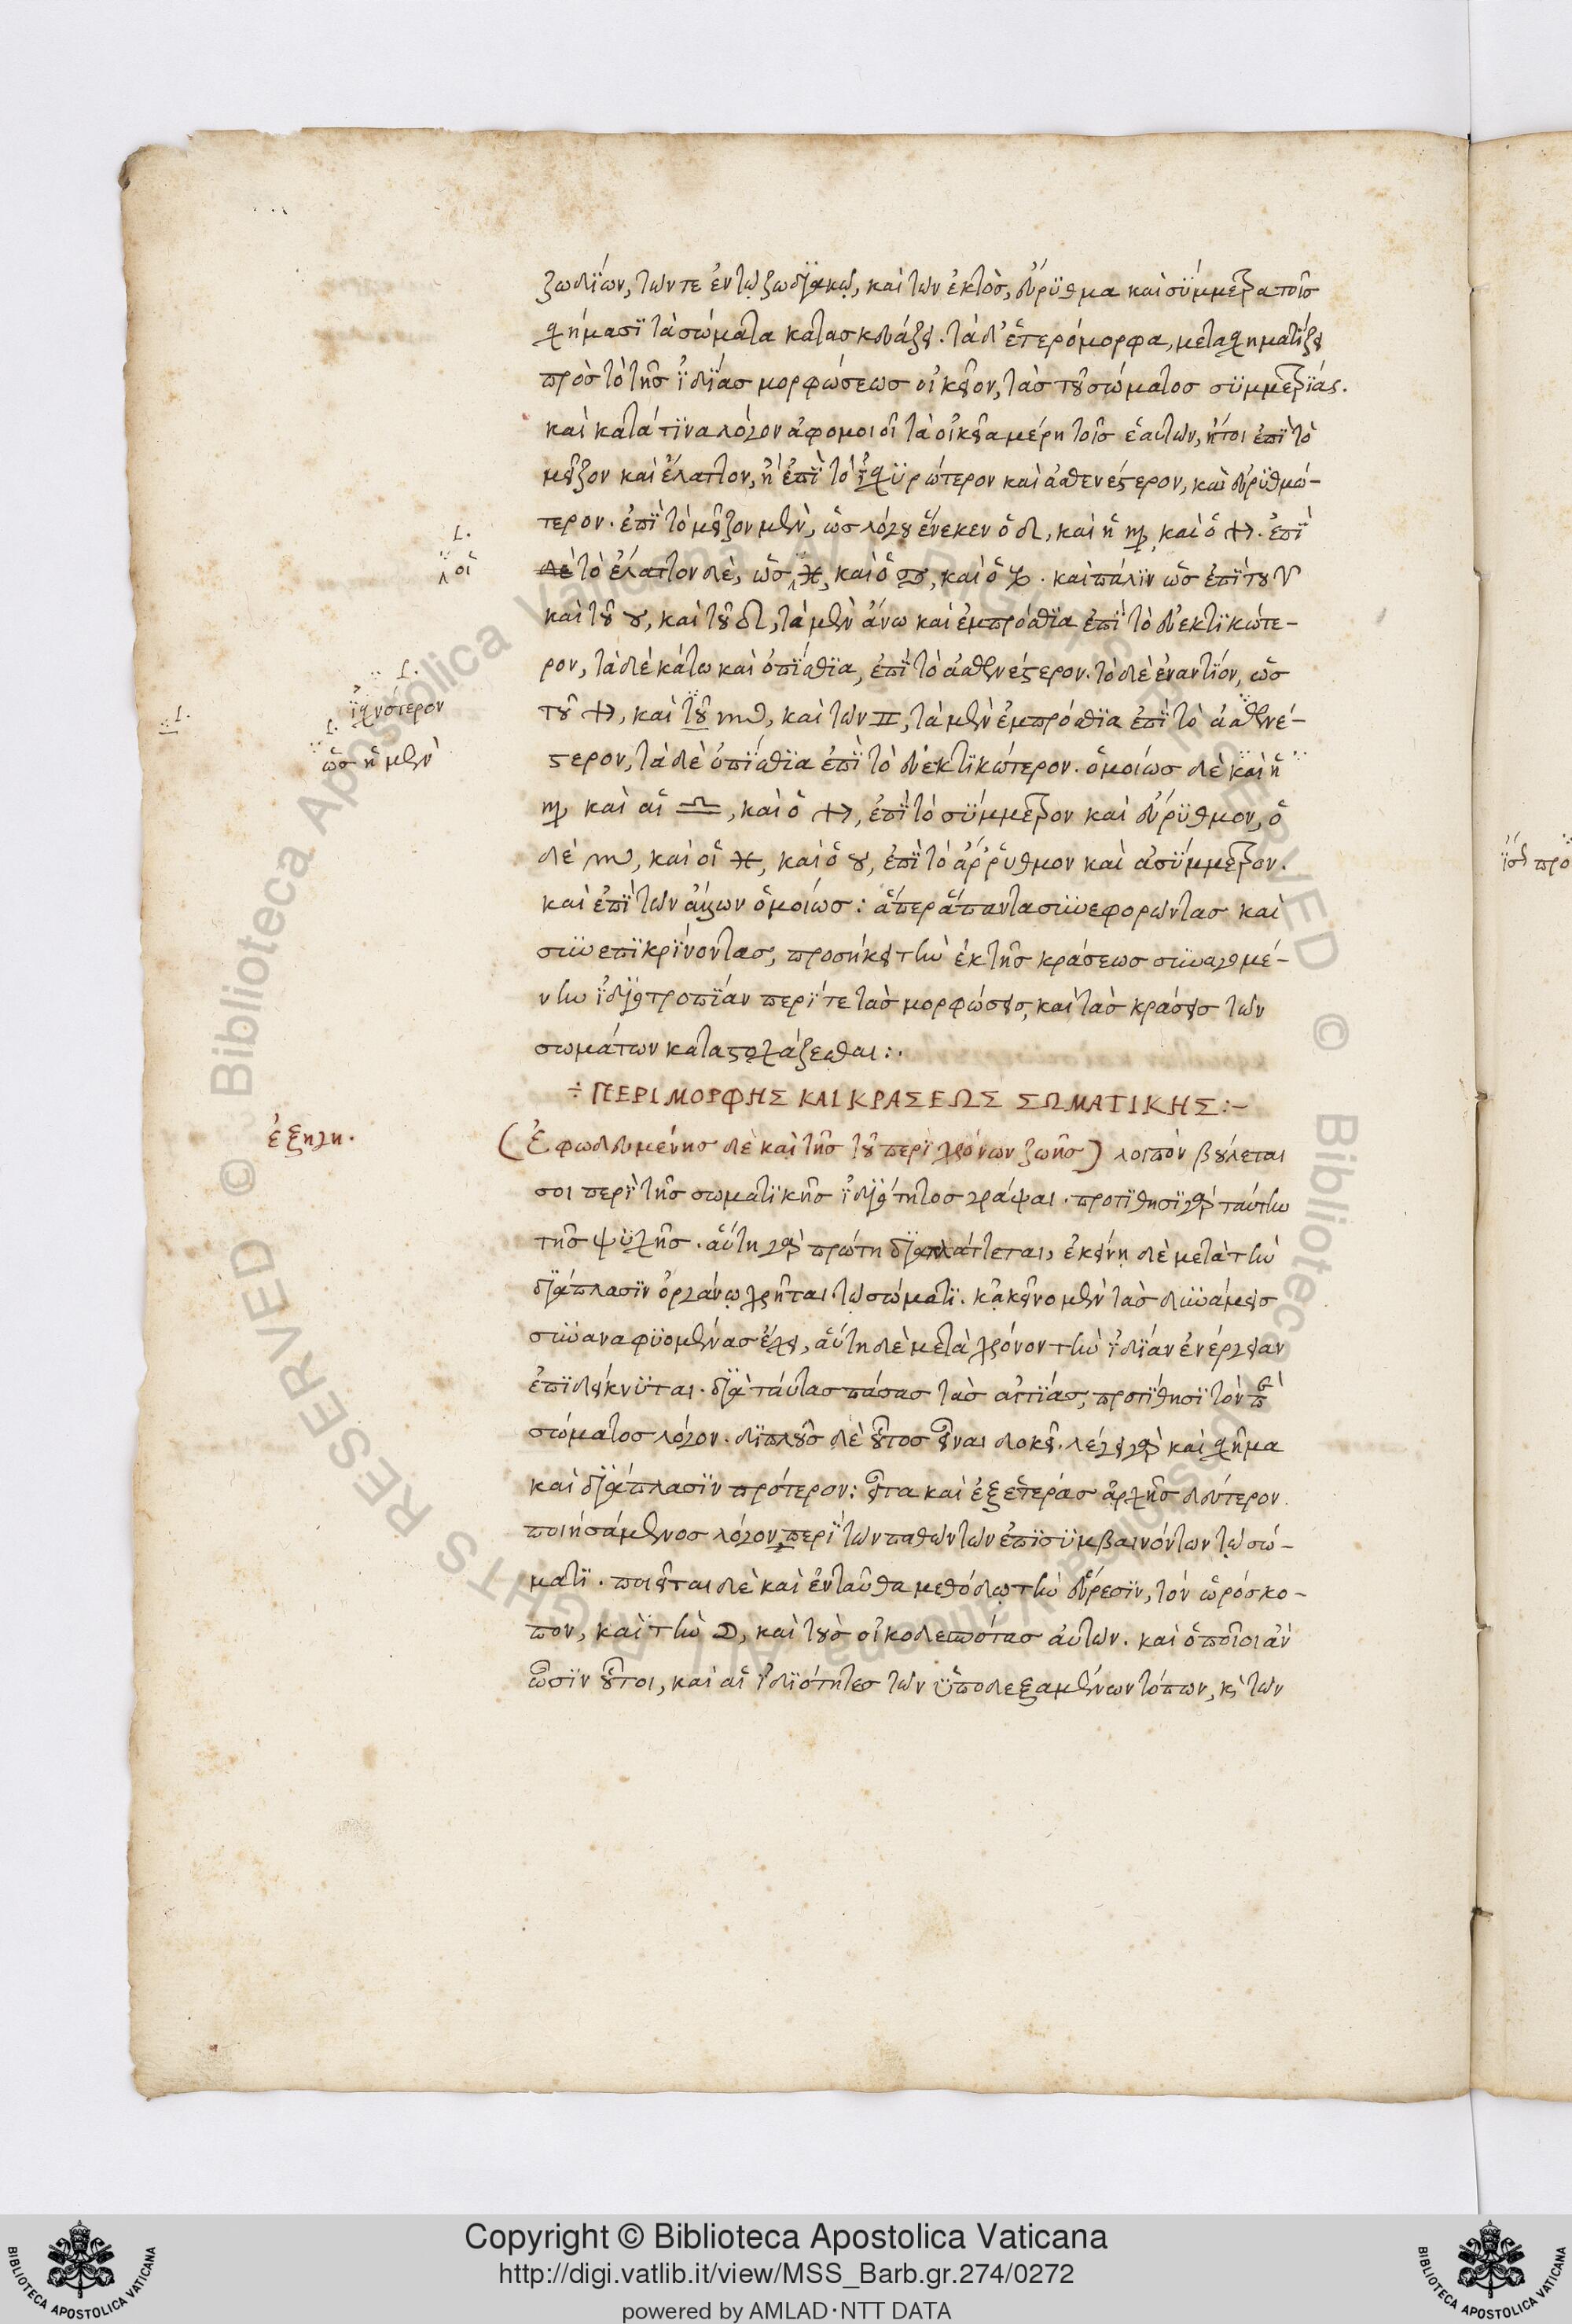 ζωδίων, τῶν τε ἐν τῷ ζωδιακῷ, καὶ τῶν ἐκτὸς, εὔρυθμα καὶ σύμμετρα τοῖς
σχήμασι τὰ σώματα κατασκευάζει. τὰ δ' ἑτερόμορφα, μετασχηματίζει
πρὸς τὸ τῆς ἰδίας μορφώσεως οἰκεῖον, τὰς τοῦ σώματος συμμετρίας.
καὶ κατά τινα λόγον ἀφομοιοῖ τὰ οἰκεῖα μέρη τοῖς ἑαυτῶν, ἤτοι ἐπὶ τὸ
μεῖζον καὶ ἔλαττον, ἢ ἐπὶ τὸ ἰσχυρώτερον καὶ ἀσθενέστερον, καὶ εὐρυθμώ-
τερον. ἐπὶ τὸ μεῖζον μὲν, ὡς λόγου ἕνεκεν ὁ ♌, καὶ ἡ ♍, καὶ ὁ ♐. ἐπὶ
δὲ τὸ ἔλαττον δὲ, ὡς ♓, καὶ ὁ ♋, καὶ ὁ ♑. καὶ πάλιν ὡς ἐπὶ τοῦ ♈
οἱ
καὶ τοῦ ♉, καὶ τοῦ ♌, τὰ μὲν ἄνω καὶ ἐμπρόσθια ἐπὶ τὸ εὐεκτικώτε-
ρον, τὰ δὲ κάτω καὶ ὀπίσθια, ἐπὶ τὸ ἀσθενέστερον. τὸ δὲ ἐναντίον, ὡς
τοῦ ♐, καὶ τοῦ ♏, καὶ τῶν ♊, τὰ μὲν ἐμπρόσθια ἐπὶ τὸ ἀσθενέ-
ἰσχνότερον
στερον, τὰ δὲ ὀπίσθια ἐπὶ τὸ εὐεκτικώτερον. ὁμοίως δὲ καὶ ἡ
ὡς ἡ μὲν
♍ καὶ αἱ ♎, καὶ ὁ ♐, ἐπὶ τὸ σύμμετρον καὶ εὔρυθμον, ὁ
δὲ ♏, καὶ οἱ ♓, καὶ ὁ ♉, ἐπὶ τὸ ἄῤῥυθμον καὶ ἀσύμμετρον.
καὶ ἐπὶ τῶν ἄλλων ὁμοίως: ἅπερ ἅπαντα συνεφορῶντας καὶ
συνεπικρίνοντας, προσήκει τὴν ἐκ τῆς κράσεως συναγομέ-
νην ἰδιοτροπίαν περί τε τὰς μορφώσεις, καὶ τὰς κράσεις τῶν
σωμάτων καταστοχάζεσθαι:.
÷ ΠΕΡΙ ΜΟΡΦΗΣ ΚΑΙ ΚΡΑΣΕΩΣ ΣΩΜΑΤΙΚΗΣ:–
ἐξηγη.
(Ἐφωδευμένης δὲ καὶ τῆς τοῦ περὶ χρόνων ζωῆς) λοιπὸν βούλεται
σοι περὶ τῆς σωματικῆς ἰδιότητος γράψαι. προτίθησι γὰρ ταύτην
τῆς ψυχῆς. αὕτη γὰρ πρώτη διαπλάττεται, ἐκείνη δὲ μετὰ τὴν
διάπλασιν ὀργάνῳ χρῆται τῷ σώματι. κἀκεῖνο μὲν τὰς δυνάμεις
συναναφυομένας ἔχει, αὕτη δὲ μετὰ χρόνον τὴν ἰδίαν ἐνέργειαν
ἐπιδείκνυται. διὰ ταύτας πάσας τὰς αἰτίας, προτίθησι τὸν περὶ
σώματος λόγον. διπλοῦς δὲ οὗτος εἶναι δοκεῖ. λέγει γὰρ καὶ σχῆμα
καὶ διάπλασιν πρότερον: εἶτα καὶ ἐξ ἑτέρας ἀρχῆς δεύτερον
ποιησάμενος λόγον, περὶ τῶν παθῶν τῶν ἐπισυμβαινόντων τῷ σώ-
ματι. ποιεῖται δὲ καὶ ἐνταῦθα μεθόδῳ τὴν εὕρεσιν, τὸν ὡρόσκο-
πον, καὶ τὴν ☽, καὶ τοὺς οἰκοδεσπότας αὐτῶν. καὶ ὁποῖοι ἂν
ὦσιν οὗτοι, καὶ αἱ ἰδιότητες τῶν ὑποδεξαμένων τόπων, κὶ τῶν
Copyright © Biblioteca Apostolica Vaticana
http://digi.vatlib.it/view/MSS_Barb.gr.274/0272
powered by AMLAD·NTT DATA
BIBLIOTECA APOSTOLICA VATICANA
BIBLIOTECA APOSTOLICA VATICANA